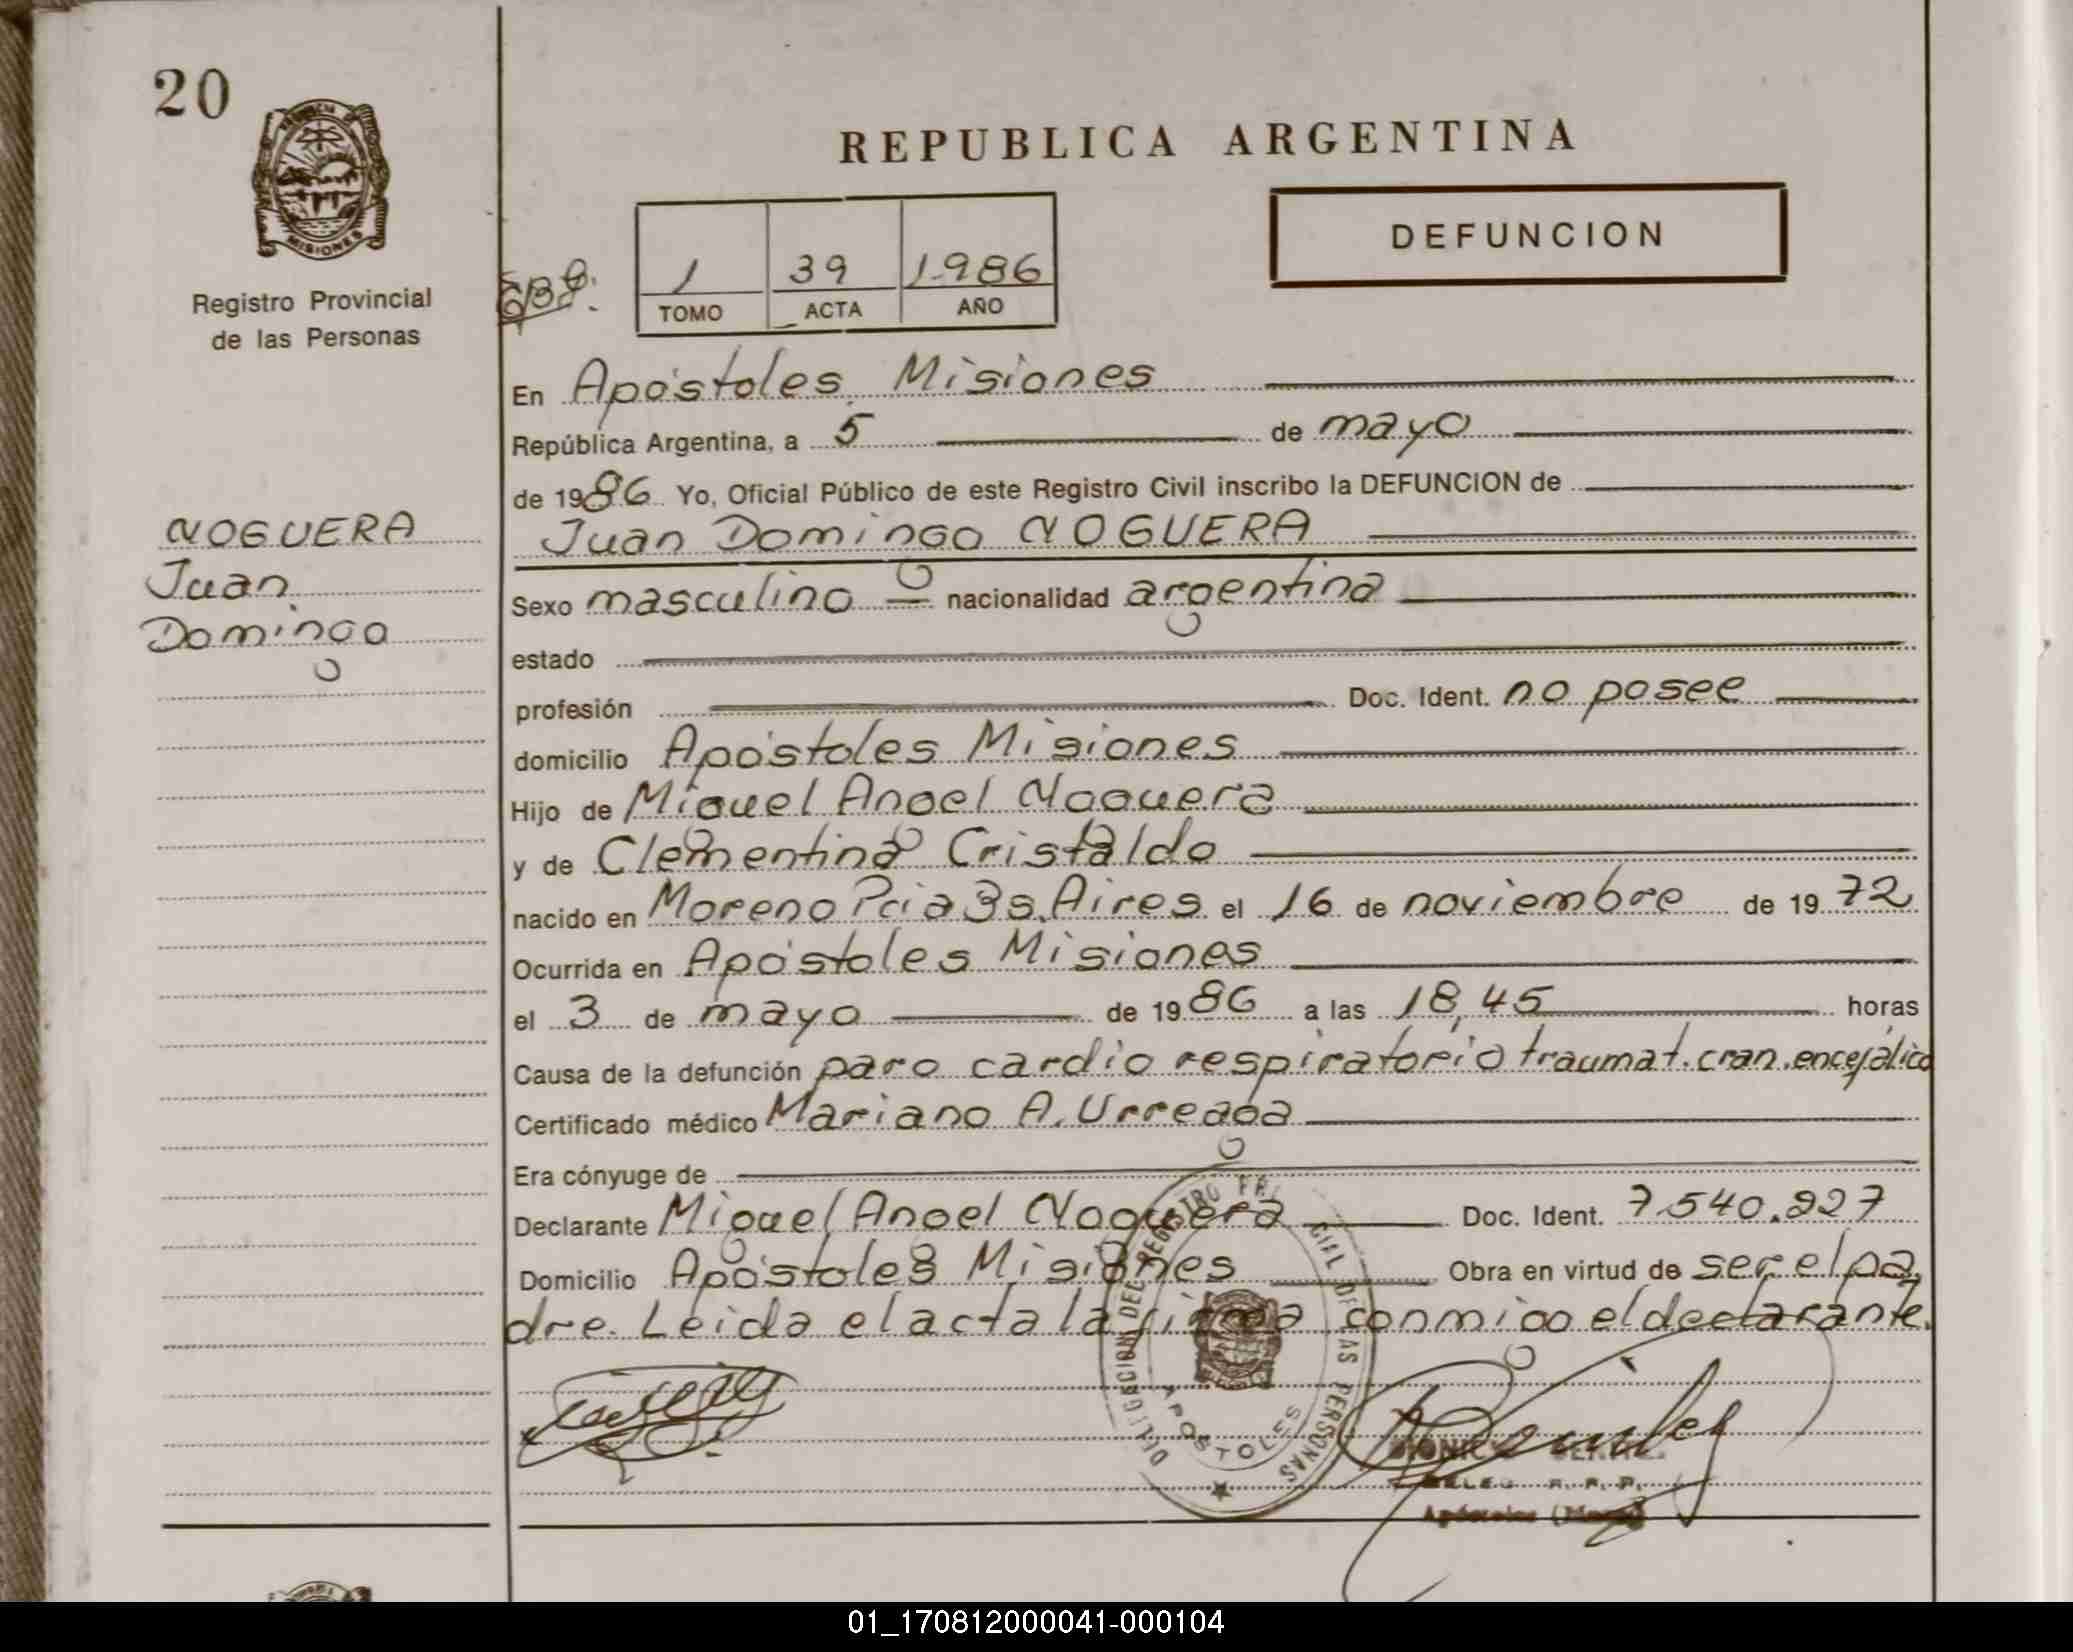 20
MISIONES
Registro Provincial
de las Personas
NOGUERA
Juan
Domingo
REPUBLICA ARGENTINA
DEFUNCION
1 39 1.986
TOMO ACTA AÑO
En Apóstoles Misiones
República Argentina, a 5 de mayo
de 1986 Yo, Oficial Público de este Registro Civil inscribo la DEFUNCION de
Juan Domingo NOGUERA
Sexo masculino nacionalidad argentina
estado
profesión Doc. Ident. no posee
domicilio Apóstoles Misiones
Hijo de Miguel Angel Noguera
y de Clementina Cristaldo
nacido en Moreno Pcia Bs. Aires el 16 de noviembre de 1972
Ocurrida en Apóstoles Misiones
el 3 de mayo de 1986 a las 18,45 horas
Causa de la defunción paro cardio respiratorio traumat. cran. encefálico
Certificado médico Mariano A. Urreaga
Era cónyuge de
Declarante Miguel Angel Noguera Doc. Ident. 7.540.227
Domicilio Apóstoles Misiones Obra en virtud de ser el pa
dre. Leida el acta la firma conmigo el declarante.
DELEGACION DEL REGISTRO DE LAS PERSONAS
APOSTOLES
DELEG. R. P. P.
Apóstoles
01_170812000041-000104